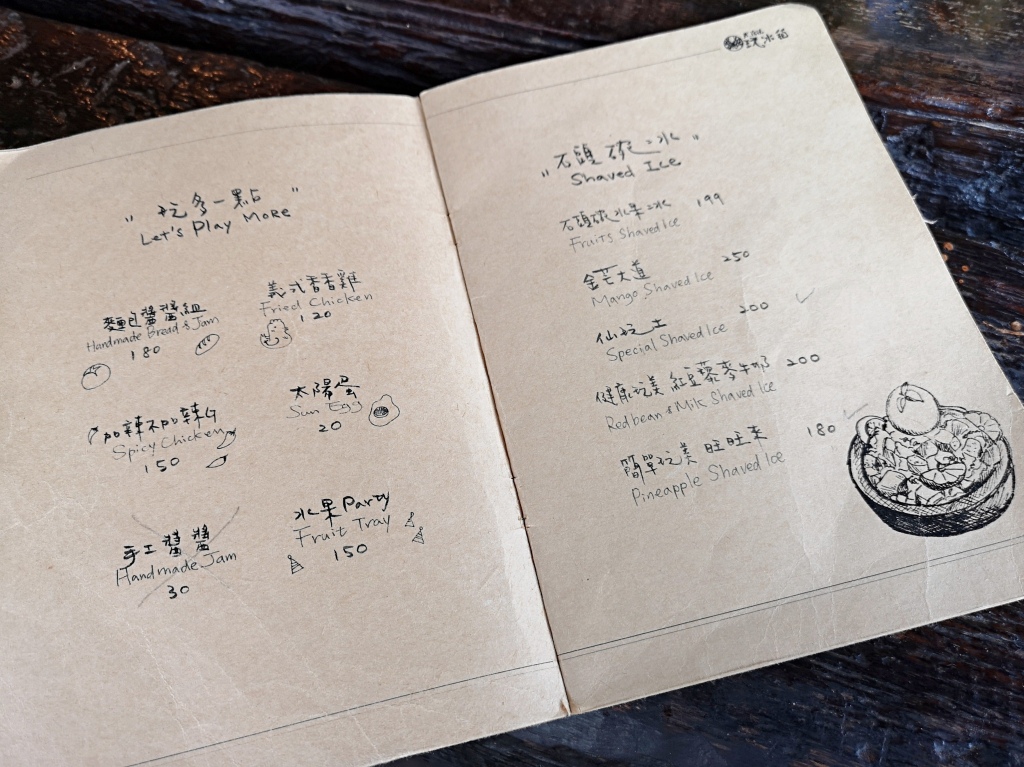 "玩多一點"
Let's Play More
麵包醬醬組
Handmade Bread & Jam
180
義式香香雞
Fried Chicken
120
加辣不加辣G
Spicy Chicken
150
太陽蛋
Sun Egg
20
手工醬醬
Handmade Jam
30
水果Party
Fruit Tray
150
玩冰箱
"石頭碗冰"
Shaved Ice
石頭碗水果冰 199
Fruits Shaved Ice
金芒大道 250
Mango Shaved Ice
仙玩土 200
Special Shaved Ice
健康玩美 紅豆藜麥牛奶 200
Redbean & Milk Shaved Ice
簡單玩美 旺旺來 180
Pineapple Shaved Ice